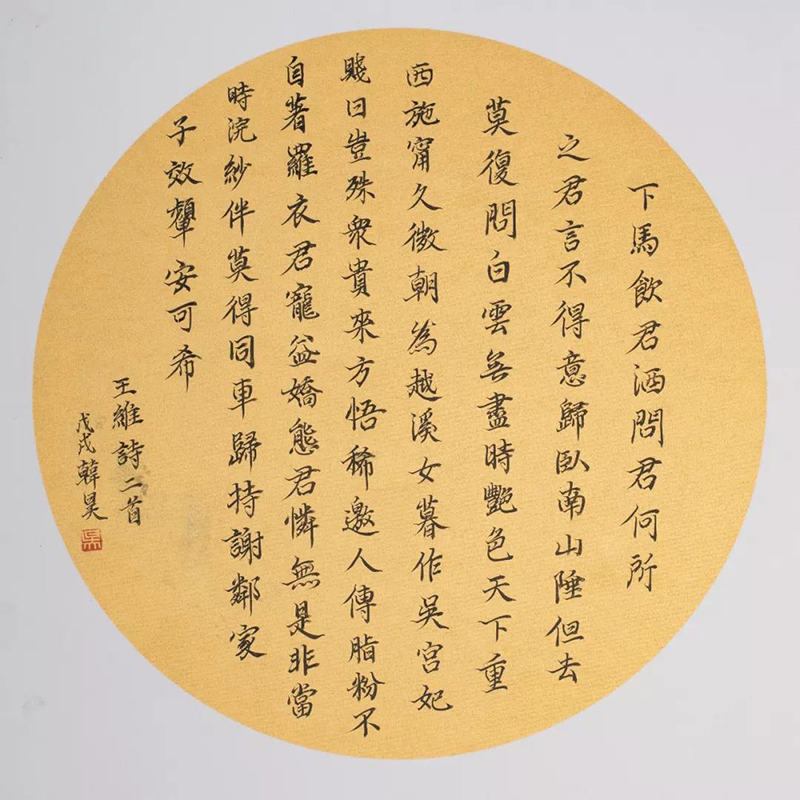 下馬飲君酒問君何所
之君言不得意歸臥南山陲但去
莫復問白雲無盡時艷色天下重
西施甯久微朝為越溪女暮作吳宮妃
賤日豈殊衆貴來方悟稀邀人傅脂粉不
自著羅衣君寵益嬌態君憐無是非當
時浣紗伴莫得同車歸持謝鄰家
子效顰安可希
王維詩二首
戊戌韓昊